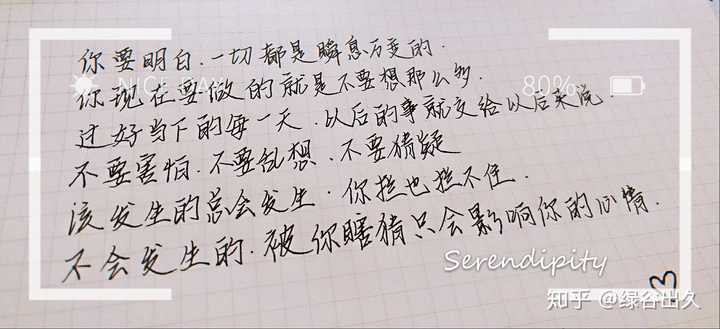 你要明白.一切都是瞬息万变的.
NICE DAY
80%
你现在要做的就是不要想那么多.
过好当下的每一天.以后的事就交给以后来说.
不要害怕.不要乱想.不要猜疑
该发生的总会发生.你拦也拦不住.
不会发生的.被你瞎猜只会影响你的心情.
Serendipity
知乎 @绿谷出久